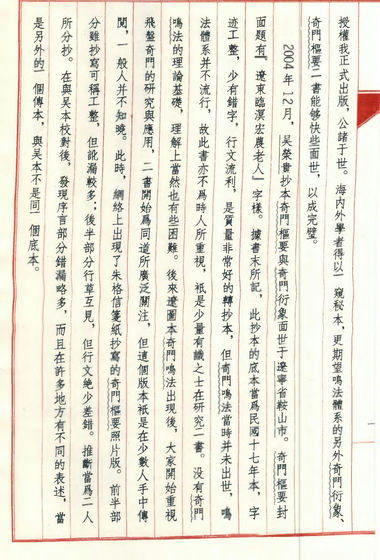 授權我正式出版，公諸于世。海内外學者得以一窺秘本，更期望鳴法體系的另外奇門衍象、
奇門樞要二書能够快些面世，以成完璧。
2004年12月，吴榮貴抄本奇門樞要與奇門衍象面世于遼寧省鞍山市。奇門樞要封
面題有『遼東臨溟宏農老人』字樣。據書末所記，此抄本的底本當爲民國十七年本，字
迹工整，少有錯字，行文流利，是質量非常好的轉抄本，但奇門鳴法當時并未出世，鳴
法體系并不流行，故此書亦不爲時人所重視，衹是少量有識之士在研究二書。没有奇門
鳴法的理論基礎，理解上當然也有些困難。後來遼圖本奇門鳴法出現後，大家開始重視
飛盤奇門的研究與應用，二書開始爲同道所廣泛關注，但這個版本衹是在少數人手中傳
閲，一般人并不知曉。此時，網絡上出現了朱格信箋紙抄寫的奇門樞要照片版。前半部
分雖抄寫可稱工整，但訛漏較多；後半部分行草互見，但行文絶少差錯。推斷當爲二人
所分抄。在與吴本校對後，發現序言部分錯漏略多，而且在許多地方有不同的表述，當
是另外的一個傳本，與吴本不是同一個底本。